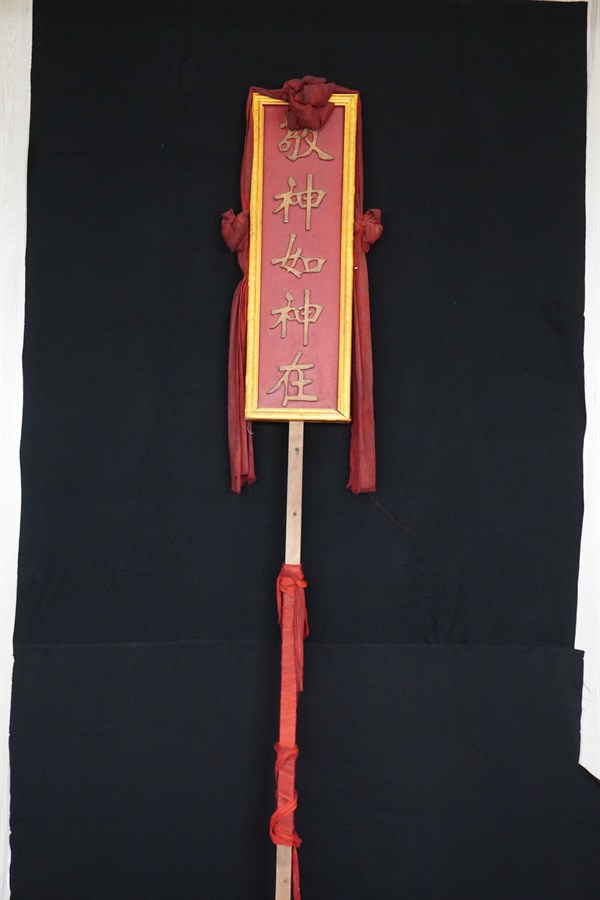 敬神如神在